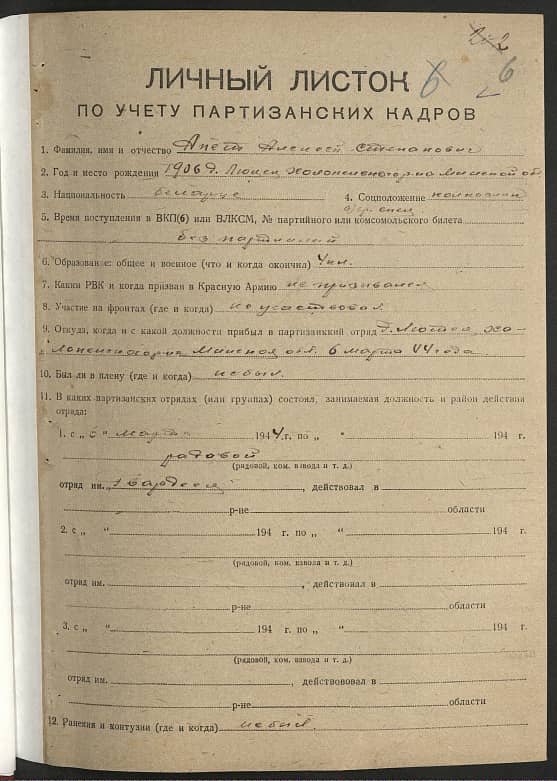 2
6
ЛИЧНЫЙ ЛИСТОК
ПО УЧЕТУ ПАРТИЗАНСКИХ КАДРОВ
1. Фамилия, имя и отчество Алексей Степанович
2. Год и место рождения 1906 д. Минской об
3. Национальность беларус 4. Соцположение
5. Время поступления в ВКП(б) или ВЛКСМ, № партийного или комсомольского билета
без партийный
6. Образование: общее и военное (что и когда окончил) 4 кл.
7. Каким РВК и когда призван в Красную Армию не призывался
8. Участие на фронтах (где и когда) не участвовал
9. Откуда, когда и с какой должности прибыл в партизанский отряд д.
Минской обл. 6 марта 44 года
10. Был ли в плену (где и когда) не был.
11. В каких партизанских отрядах (или группах) состоял, занимаемая должность и район действия
отряда:
1. с „ 6 " марта 1944 г. по „ " 194 г.
рядовой
(рядовой, ком. взвода и т. д.)
отряд им. , действовал в
р-не области
2. с „ " 194 г. по „ " 194 г.
(рядовой, ком. взвода и т. д.)
отряд им. , действовал в
р-не области
3. с „ " 194 г. по „ " 194 г.
(рядовой, ком. взвода и т. д.)
отряд им. , действовал в
р-не области
12. Ранения и контузии (где и когда) не был